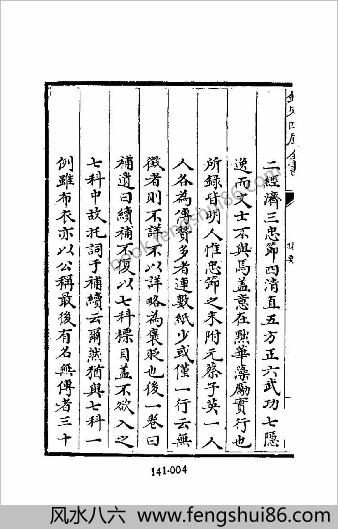 欽定四庫全書
提要
二經濟三忠節四清直五方正六武功七隱
逸而文士不與焉蓋意在黜華藻勵實行也
所錄皆明人惟忠節之末附元蔡子英一人
人各為傳贊多者連數紙少或僅一行云無
徵者則不詳不以詳略為襃貶也後一卷曰
補遺曰續補不復以七科標目蓋不欲入之
七科中故托詞于補續云爾然猶與七科一
例雖布衣亦以公稱最後有名無傳者三十
book.fengshui86.com
141-004
风水八六 www.fengshui86.com